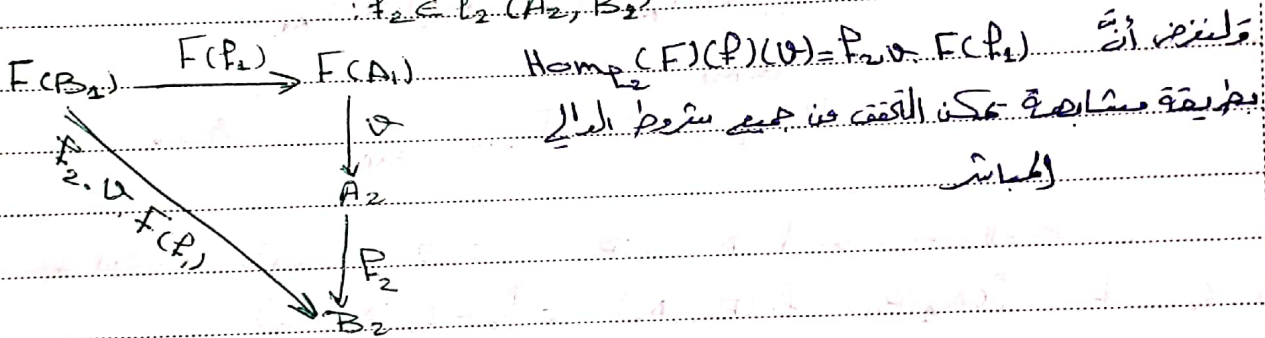 f₂ ∈ ℓ₂ (A₂, B₂)
ولنفرض أنَّ Hom_ℓ₂ (F)(f)(υ) = f₂ υ F(f₁)
بطريقة مشابهة يمكن التحقق من جميع شروط الدالي
المباشر
F(B₁) F(f₁) F(A₁)
υ
A₂
f₂. υ F(f₁)
f₂
B₂